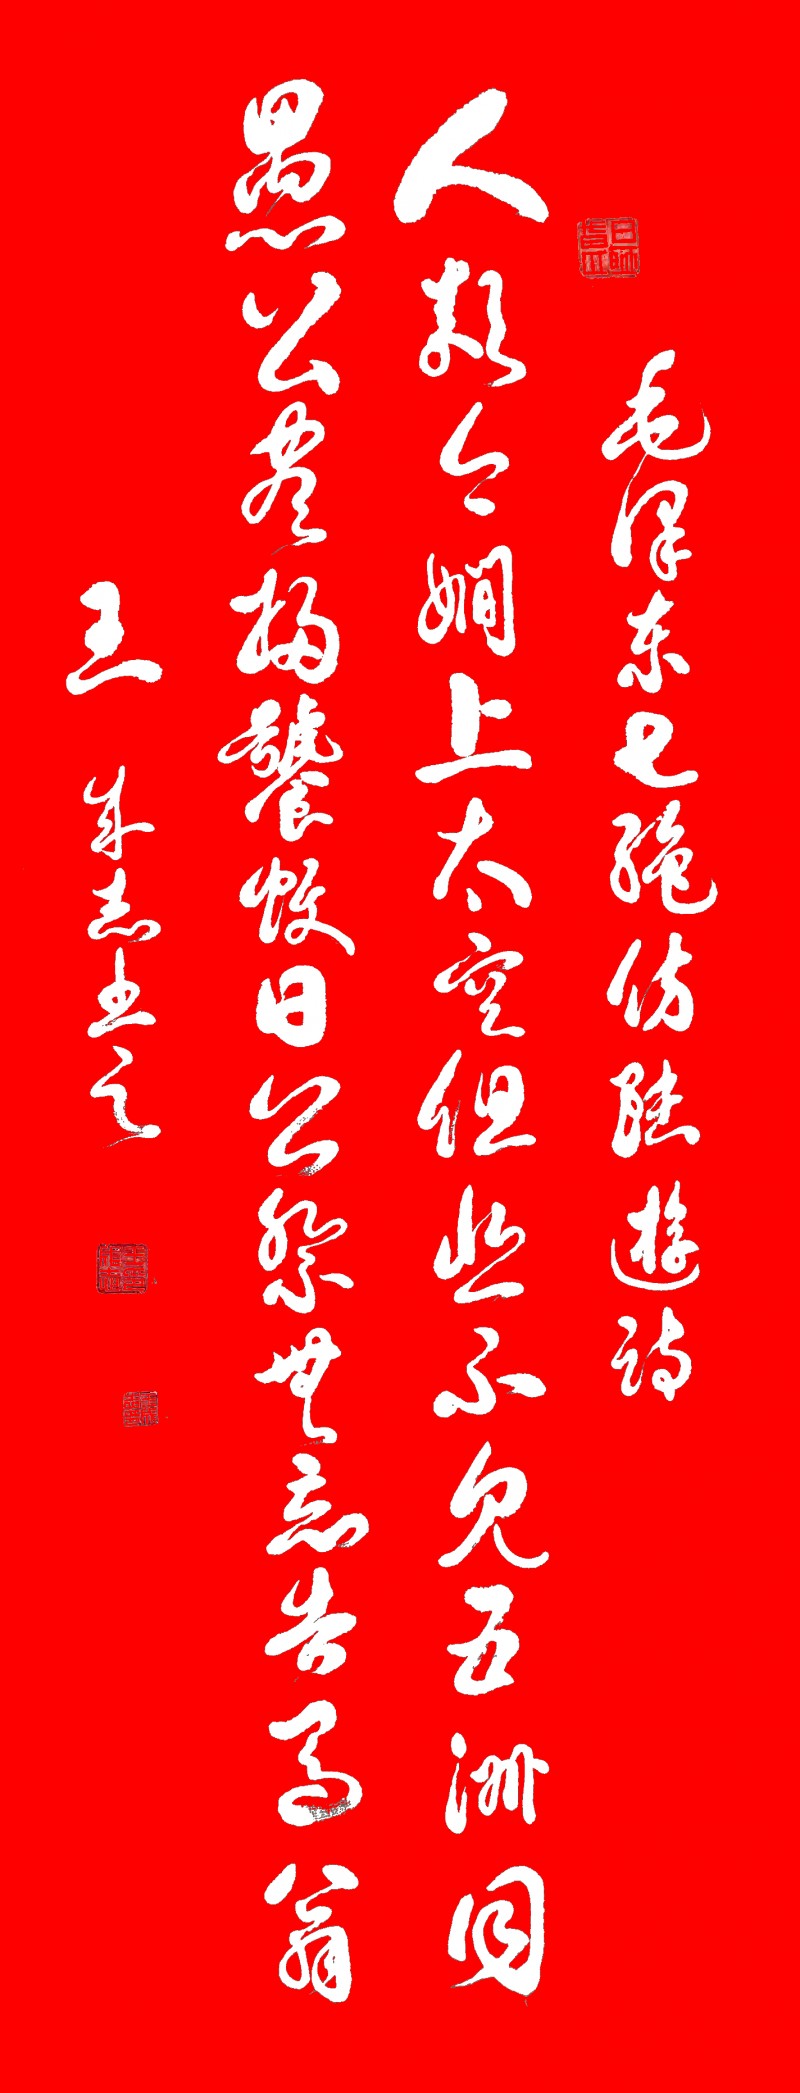 毛泽东七绝仿陆遊诗
人類今嫻上太空但悲不见五洲同
愚公尽掃饕蚊日公祭無忘告马翁
王成志书之